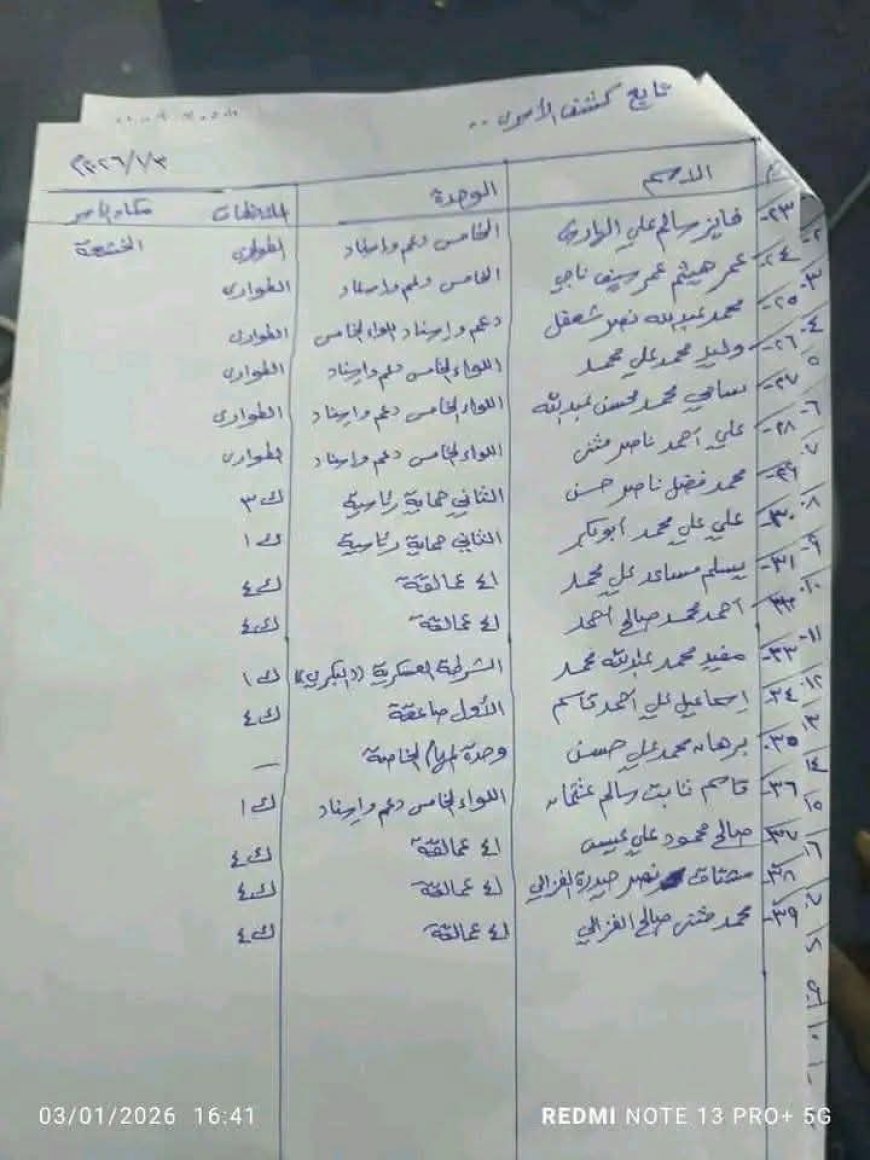 تابع كشف الأسرى ..
٢٠٢٦/١/٣م
م الاسم الوحدة الملاحظات مكان الأسر
٢٣- فايز سالم علي الهادي الخامس دعم واسناد الطوارئ الخشعة
٢٤- عمر هيثم عمر سيف ناجي الخامس دعم واسناد الطوارئ
٢٥- محمد عبدالله نصر شعفل دعم وإسناد اللواء الخامس الطوارئ
٢٦- وليد محمد علي محمد اللواء الخامس دعم واسناد الطوارئ
٢٧- سامي محمد محسن عبدالله اللواء الخامس دعم واسناد الطوارئ
٢٨- علي احمد ناصر مثنى اللواء الخامس دعم واسناد الطوارئ
٢٩- محمد فضل ناصر حسن الثاني حماية رئاسية ك ٣
٣٠- علي علي محمد ابوبكر الثاني حماية رئاسية ك ١
٣١- يسلم مساعد علي محمد ٤١ عمالقة ك ٤
٣٢- احمد محمد صالح احمد ٤١ عمالقة ك ٤
٣٣- مفيد محمد عبدالله محمد الشرطة العسكرية ((البكري)) ك ١
٣٤- إسماعيل علي احمد قاسم الأول صاعقة ك ٤
٣٥- برهان محمد علي حسن وحدة المهام الخاصة —
٣٦- قاسم ثابت سالم عثمان اللواء الخامس دعم واسناد ك ١
٣٧- صالح محمود علي عيسى ٤١ عمالقة ك ٤
٣٨- مشتاق نصر حيدرة الغزالي ٤١ عمالقة ك ٤
٣٩- محمد مثنى صالح الغزالي ٤١ عمالقة ك ٤
03/01/2026 16:41
REDMI NOTE 13 PRO+ 5G